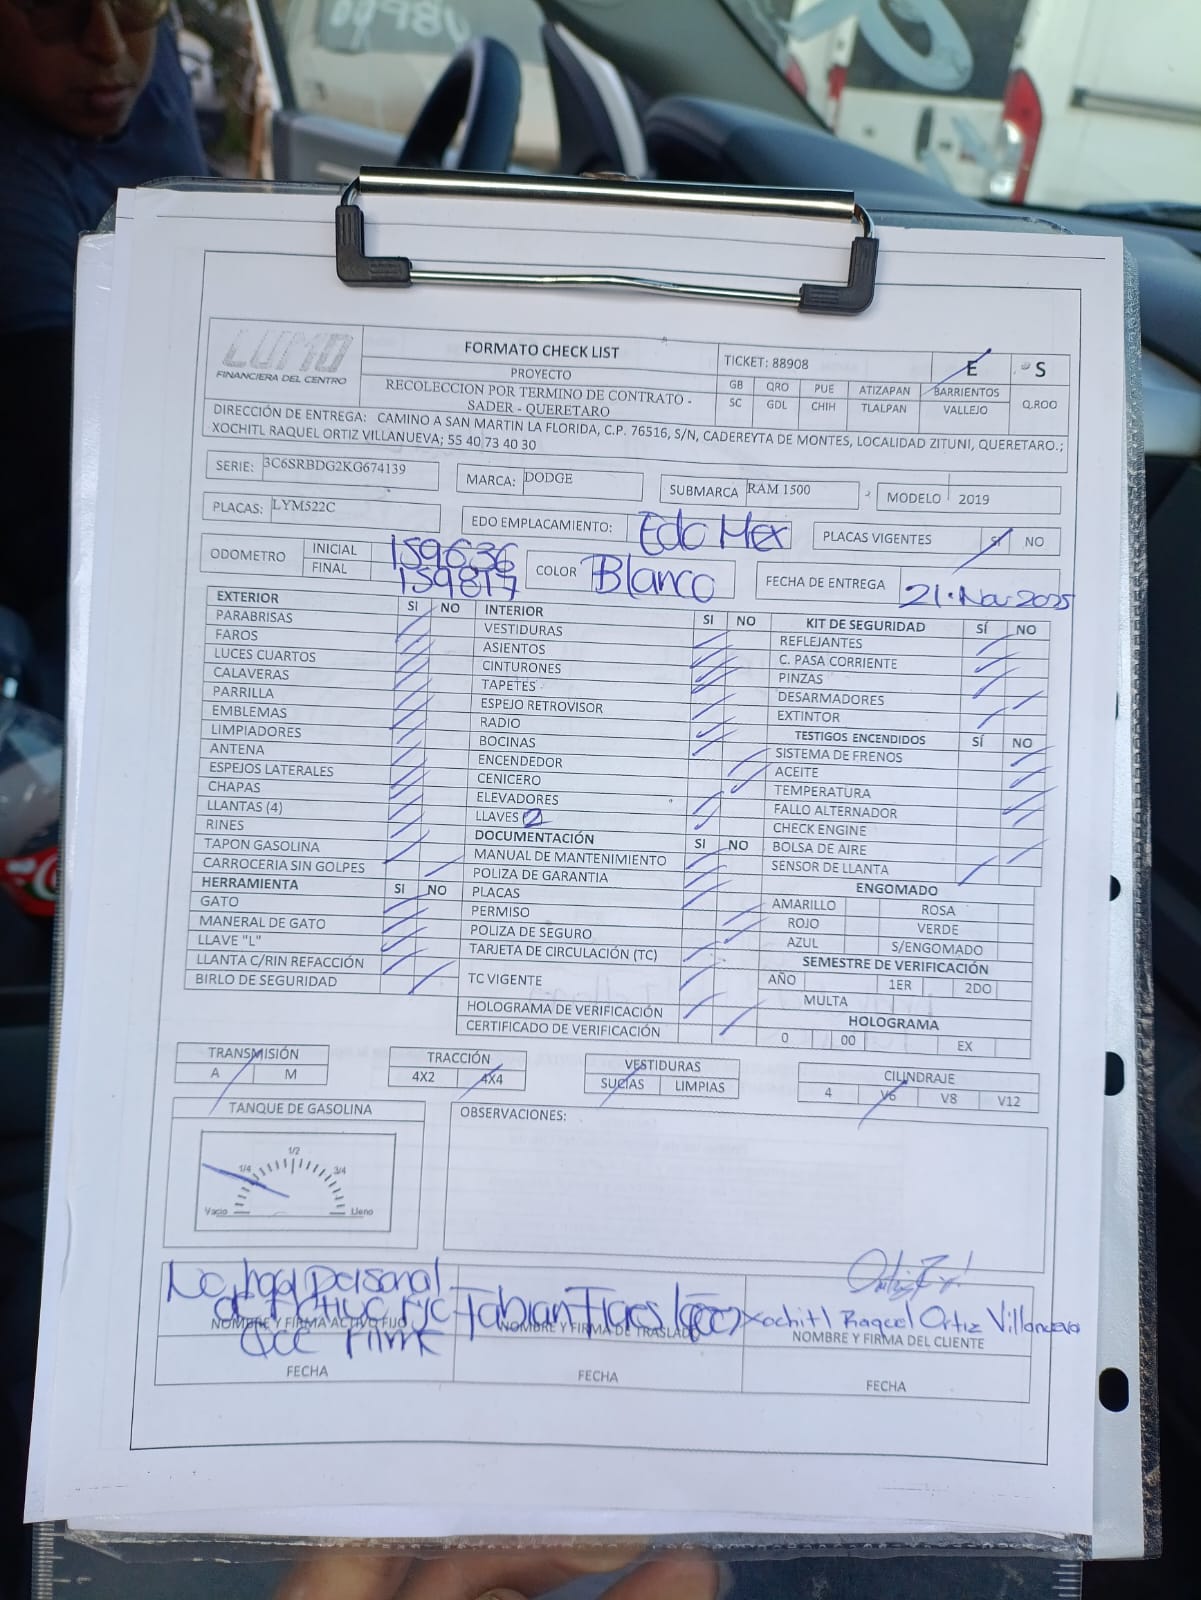 LUMO
FINANCIERA DEL CENTRO
FORMATO CHECK LIST
PROYECTO
RECOLECCION POR TERMINO DE CONTRATO -
SADER - QUERETARO
TICKET: 88908 E S
GB QRO PUE ATIZAPAN BARRIENTOS Q.ROO
SC GDL CHIH TLALPAN VALLEJO
DIRECCIÓN DE ENTREGA: CAMINO A SAN MARTIN LA FLORIDA, C.P. 76516, S/N, CADEREYTA DE MONTES, LOCALIDAD ZITUNI, QUERETARO.;
XOCHITL RAQUEL ORTIZ VILLANUEVA; 55 40 73 40 30
SERIE: 3C6SRBDG2KG674139 MARCA: DODGE SUBMARCA RAM 1500 MODELO 2019
PLACAS: LYM522C EDO EMPLACAMIENTO: Edo Mex PLACAS VIGENTES SI NO
ODOMETRO INICIAL 159636 COLOR Blanco FECHA DE ENTREGA 21·Nov·2025
FINAL 159817
EXTERIOR SI NO
PARABRISAS
FAROS
LUCES CUARTOS
CALAVERAS
PARRILLA
EMBLEMAS
LIMPIADORES
ANTENA
ESPEJOS LATERALES
CHAPAS
LLANTAS (4)
RINES
TAPON GASOLINA
CARROCERIA SIN GOLPES
HERRAMIENTA SI NO
GATO
MANERAL DE GATO
LLAVE "L"
LLANTA C/RIN REFACCIÓN
BIRLO DE SEGURIDAD
INTERIOR SI NO
VESTIDURAS
ASIENTOS
CINTURONES
TAPETES
ESPEJO RETROVISOR
RADIO
BOCINAS
ENCENDEDOR
CENICERO
ELEVADORES
LLAVES 2
DOCUMENTACIÓN SI NO
MANUAL DE MANTENIMIENTO
POLIZA DE GARANTIA
PLACAS
PERMISO
POLIZA DE SEGURO
TARJETA DE CIRCULACIÓN (TC)
TC VIGENTE
HOLOGRAMA DE VERIFICACIÓN
CERTIFICADO DE VERIFICACIÓN
KIT DE SEGURIDAD SÍ NO
REFLEJANTES
C. PASA CORRIENTE
PINZAS
DESARMADORES
EXTINTOR
TESTIGOS ENCENDIDOS SÍ NO
SISTEMA DE FRENOS
ACEITE
TEMPERATURA
FALLO ALTERNADOR
CHECK ENGINE
BOLSA DE AIRE
SENSOR DE LLANTA
ENGOMADO
AMARILLO ROSA
ROJO VERDE
AZUL S/ENGOMADO
SEMESTRE DE VERIFICACIÓN
AÑO 1ER 2DO
MULTA
HOLOGRAMA
0 00 EX
TRANSMISIÓN
A M
TRACCIÓN
4X2 4X4
VESTIDURAS
SUCIAS LIMPIAS
CILINDRAJE
4 V6 V8 V12
TANQUE DE GASOLINA
1/4 1/2 3/4
Vacio Lleno
OBSERVACIONES:
No hay personal
de Activo Fijo
que Firme
NOMBRE Y FIRMA ACTIVO FIJO
FECHA
Fabian Flores
NOMBRE Y FIRMA DE TRASLADO
FECHA
Xochitl Raquel Ortiz Villanueva
NOMBRE Y FIRMA DEL CLIENTE
FECHA